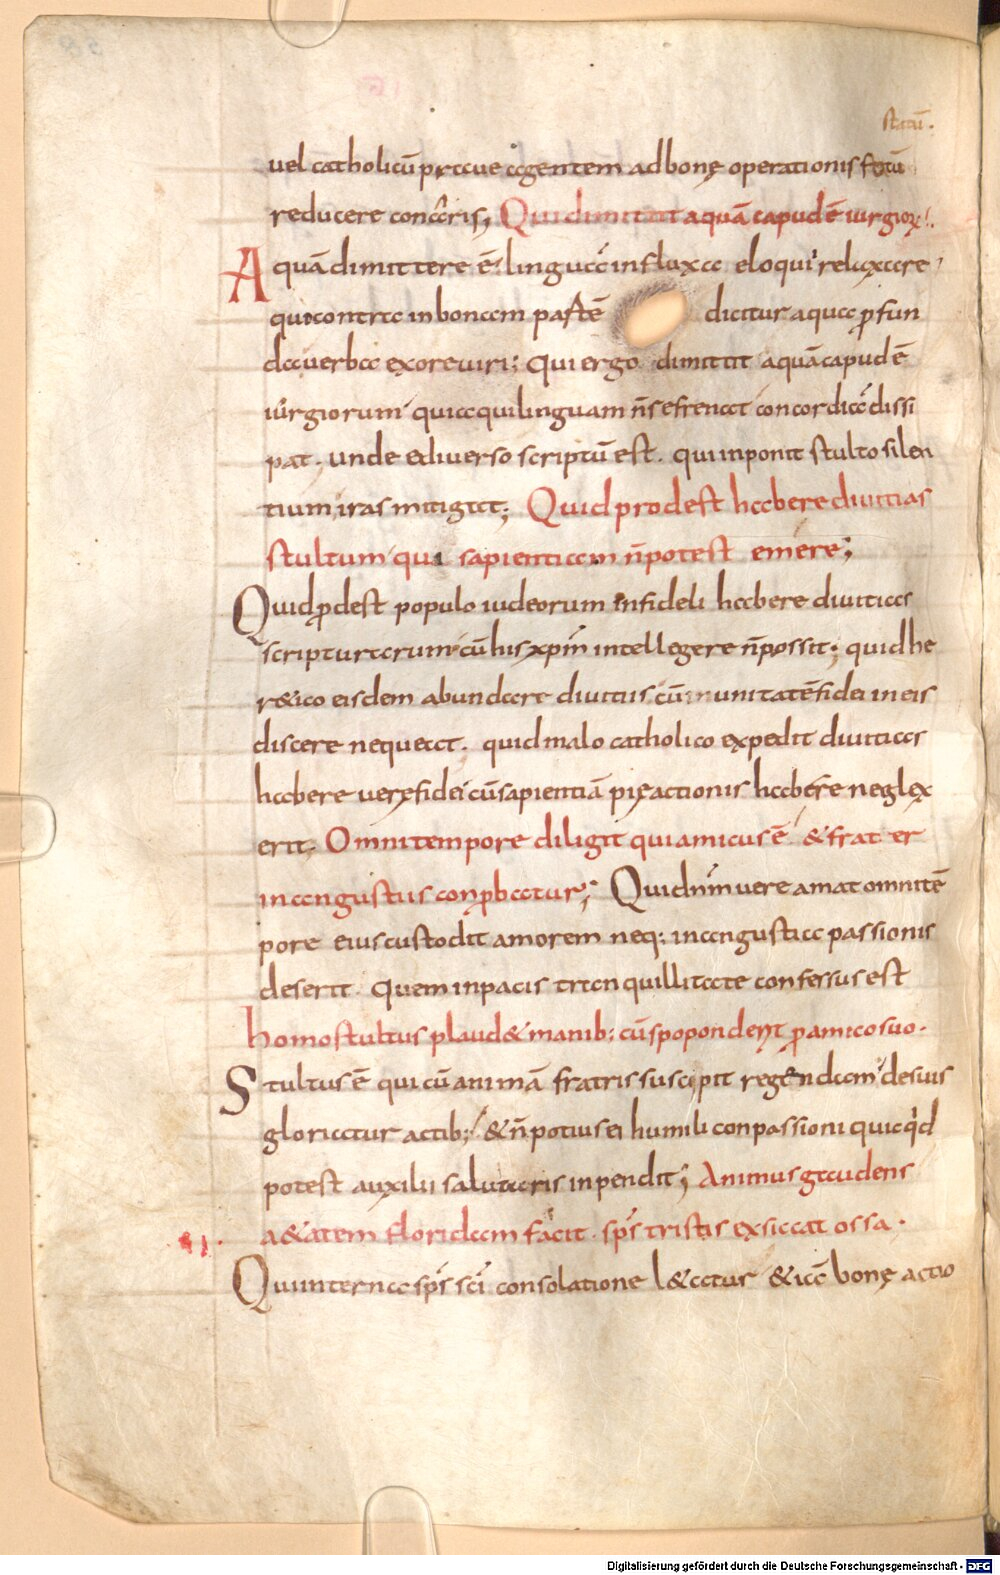 statū.
uel catholicū praue agentem ad bonę operationis fotū
reducere conaris; Qui dimittit aquā capud ē iurgiorꝝ;
Aquā dimittere ē linguā in fluxa eloqui relaxare,
qui contra in bonam partē dicitur aqua profun
da uerba ex ore uiri; Qui ergo dimittit aquā capud ē
iurgiorum quia qui linguam n̄ se frenat concordiā dissi
pat. unde ediuerso scriptū est. qui inponit stulto silen
tium iras mitigat; Quid prodest habere diuitias
stultum qui sapientiam n̄ potest emere;
Quid ꝓdest populo iudeorum infideli habere diuitias
scripturarum cū his xp̄m intellegere n̄ possit; quid he
r&ico eisdem abundare diuitiis cū unitatē fidei in eis
discere nequeat. quid malo catholico expedit diuitias
habere uerę fidei cū sapientiā pię actionis habere neglex
erit. Omni tempore diligit qui amicus ē & frater
in angustiis conꝓbatur; Qui dn̄m uere amat omni tē
pore eius custodit amorem neq; in angustia passionis
deserit. Quem in pacis tranquillitate confessus est
homo stultus plaud& manib; cū spoponderit ꝓ amico suo.
Stultus ē qui cū animā fratris suscipit regendam de suis
gloriatur actib; & n̄ potius ei humili conpassioni quicqd
potest auxilii salutaris inpendit; Animus gaudens
a&atem floridam facit. sp̄s tristis exsiccat ossa.
Qui interna sp̄s sc̄i consolatione l&atur &iā bonę actio
Digitalisierung gefördert durch die Deutsche Forschungsgemeinschaft - DFG